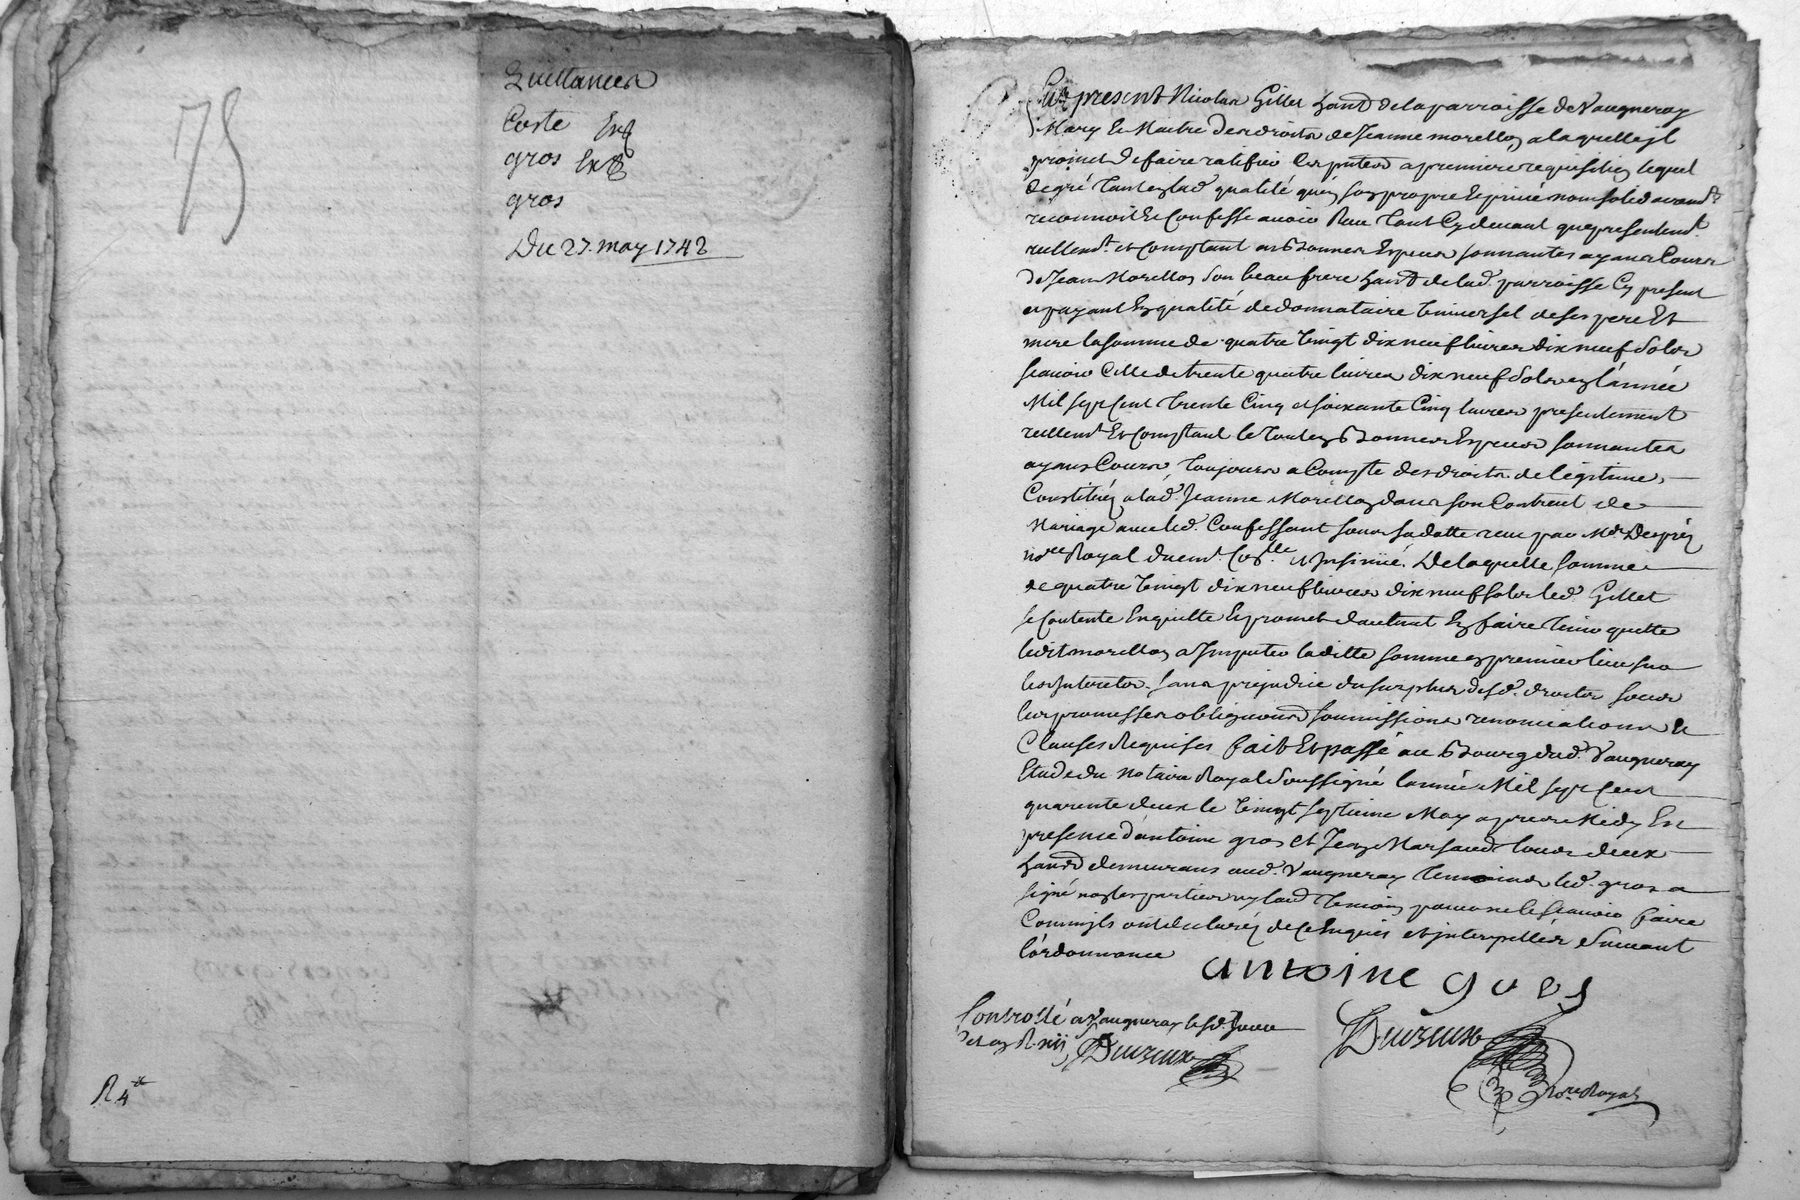 75
Quittances
Coste Exp
gros Exp
gros
Du 27. may 1742
R 4
Fut present Nicolas Gillet habt de la parroisse de Vaugneray
Mary et Maitre des droits de Jeanne morellon a laquelle jl
promet de faire ratifier ces pntes a premiere requisition lequel
de gré tant en lad. qualité qu'en son propre et privé nom solidairemt
reconnoit et confesse avoir Reu tant cy devant que presentemt
reellemt et comptant en bonnes Especes sonnantes ayans Cours
de Jean Morellon son beau frere habt de lad. parroisse Cy present
et payant En qualité de donnataire universel de ses pere Et
mere la somme de quatre vingt dix neuf livres dix neuf sols
scavoir Celle de trente quatre livres dix neuf sols en l'année
Mil sept Cent trente Cinq et soixante Cinq livres presentement
reellemt Et Comptant le tout en bonnes Especes sonnantes
ayans Cours toujours a Compte des droits de legitime
Constitués a lad. Jeanne Morellon dans son Contract de
Mariage avec led. Confessant sous sa datte receu par Me
nore Royal duemt Collé et Insinué. De laquelle somme
de quatre vingt dix neuf livres dix neuf sols led. Gillet
se Contente En quitte Et promet d'autruit En faire tenir quitte
ledit morellon a Imputer laditte somme en premier lieu sur
les Interets. sans prejudice du surplus desd. droits sous
les promesses obligations soumissions renonciations &
Clauses Requises fait Et passé au Bourg dud. Vaugneray
Etude du notaire Royal soussigné l'année Mil sept Cent
quarente deux le vingt septieme May apres Midy En
presence d'antoine gros et Jean tous deux
habts demeurans aud. Vaugneray temoins led. gros a
signé non les parties ny laud temoin pour ne le scavoir faire
Comm'jls ont declarés de ce Enquis et jnterpellés suivant
l'ordonnance
antoine gros
Controllé a Vaugneray le sd. Jour
Reçu R. xij
nore Royal